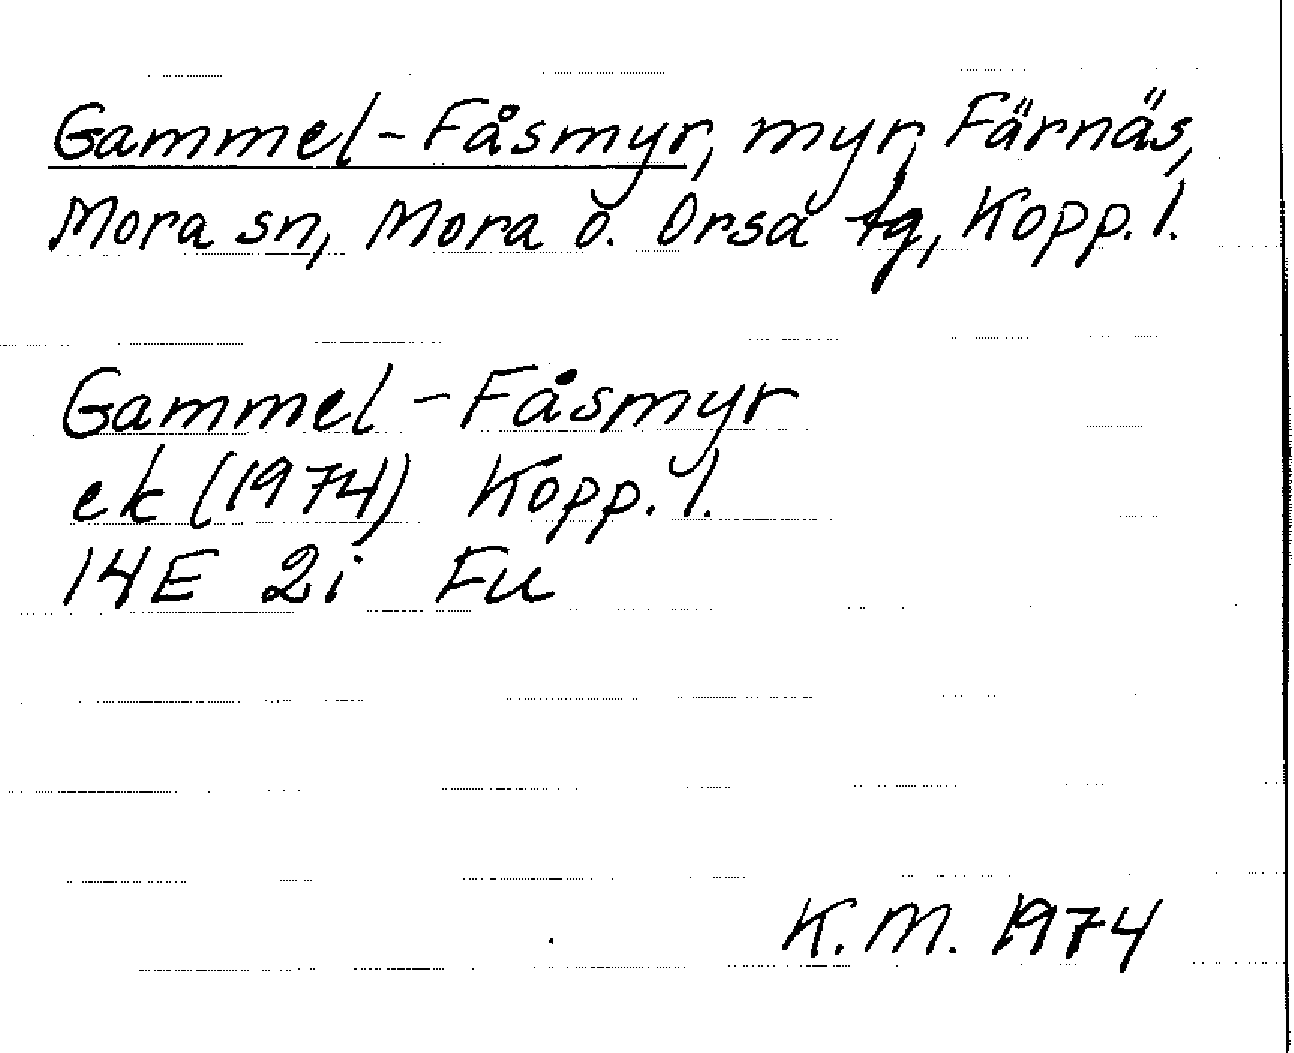 Gammel-Fåsmyr, myr, Färnäs,
Mora sn, Mora o. Orsa tg, Kopp. l.
Gammel-Fåsmyr
ek (1974) Kopp. l.
14E 2i Fu
K. M. 1974